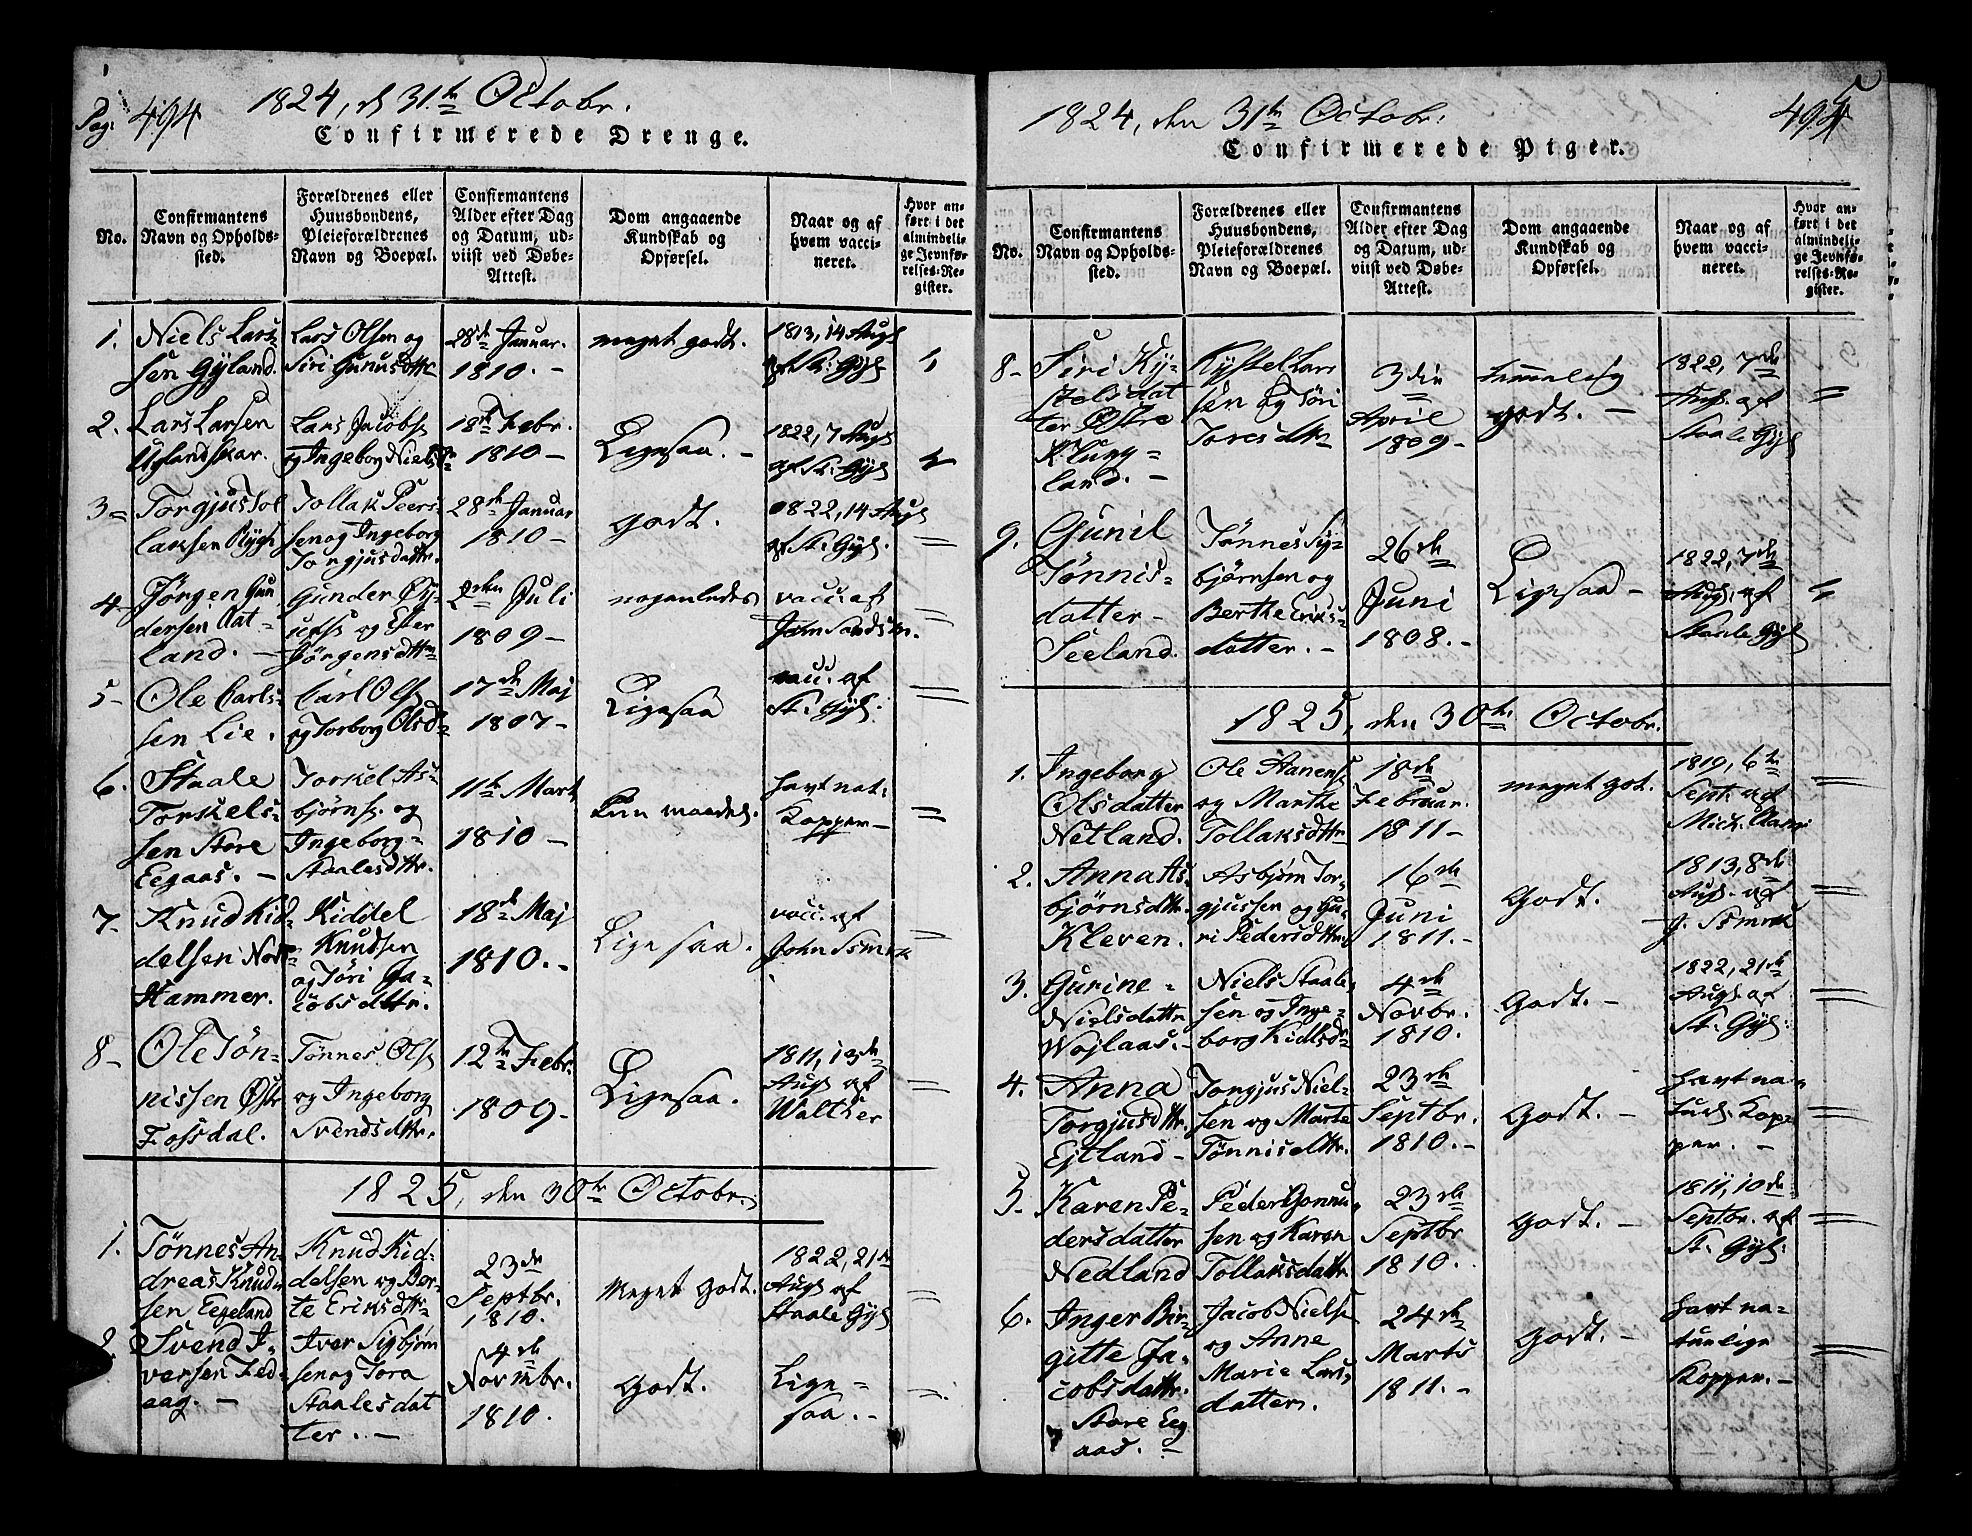 Pag. 494
1824, d 31te Octobr.
Confirmerede Drenge.
No.
Confirmantens
Navn og Opholds-
sted.
Forældrenes eller
Huusbondens,
Pleieforældrenes
Navn og Boepæl.
Confirmantens
Alder efter Dag
og Datum, ud-
viist ved Døbe-
Attest.
Dom angaaende
Kundskab og
Opførsel.
Naar og af
hvem vacci-
neret.
Hvor an-
ført i det
almindeli-
ge Jevnfø-
relses-Re-
gister.
1.
Niels Lars-
sen Gyland.
Lars Olsen og
Siri Gunusdttr
28de Januar.
1810. -
meget godt.
1813, 14 Aug
af St: Gyl
2.
Lars Larsen
Uglandskar.
Lars Jacobs
og Ingeborg Niels
18de Febr.
1810 -
Ligesaa. -
1822, 7 Aug
af St: Gyl
3 -
Torgjus Tol
laksen Rygh
Tollak Peers-
sen og Ingeborg
Torgjusdattr.
28de Januar
1810 -
Godt.
1822, 14 Aug
af St: Gyl.
4 -
Jørgen Gun
dersen Rat-
land. -
Gunder Øy-
og Ester
Jørgensdttr
2den Juli
1809 -
nogenledes
vacc. af
John
5 -
Ole Carls-
sen Lie.
Carl Ols
og Torborg Olsd
17de Maj
1807 -
Ligesaa
vacc. af
St. Gyl.
6.
Staale
Torkels-
sen Store
Eegaas. -
Torkel As-
bjørns. og
Ingeborg
Staalesdttr.
11te Mart
1810 -
kun maadel.
havt nat.
Kopper -
7 -
Knud Kid
delsen Nord
Hammer.
Kiddel
Knudsen
og Tøri Ja-
cobsdttr.
18de Maj
1810. -
Ligesaa.
vacc. af
John
8 -
Ole Tøn-
nissen Østr
Fossdal.
Tønnes Ols
og Ingeborg
Svendsdttr.
12te Febr.
1809 -
Ligesaa.
1811, 13de
Aug af
Walther
1825, den 30te Octobr.
1.
Tønnes An-
dreas Knud-
sen Eegeland
Knud Kid-
delsen og Ber-
te Eriksdttr
23de
Septbr.
1810.
Meget Godt.
1822, 21de
Aug af
Staale Gyl
2.
Svend I-
versen Fed-
aag. -
Iver Sigbjørn
sen og Tora
Staalesdat
ter. -
4de
Novmbr.
1810.
Godt.
Lige-
saa. -
495
1824, den 31te Octobr.
Confirmerede Piger.
No.
Confirmantens
Navn og Opholds-
sted.
Forældrenes eller
Huusbondens,
Pleieforældrenes
Navn og Boepæl.
Confirmantens
Alder efter Dag
og Datum, ud-
viist ved Døbe-
Attest.
Dom angaaende
Kundskab og
Opførsel.
Naar og af
hvem vacci-
neret.
Hvor an-
ført i det
almindeli-
ge Jevnfø-
relses-Re-
gister.
8 -
Siri Ky-
stelsdat
ter Østre
Klung-
land. -
Kystel Lars
sen og Tøri
Toresdttr
3die
April
1809 -
temmelig
godt. -
1822, 7de
Aug. af
Staale Gyl
9.
Gunil
Tønnis-
datter
Seeland.
Tønnes Sy-
bjørnsen og
Berthe Eriks-
datter. -
26de
Juni
1808. -
Ligesaa -
1822, 7de
Aug. af
Staale Gyl
1825, den 30te Octobr.
1.
Ingeborg
Olsdatter
Netland.
Ole Aanens
og Marthe
Tollaksdttr
18de
Februar.
1811 -
meget got.
1819, 6te
Sept. af
Mich.
2.
Anna As-
bjørnsdttr.
Kleven.
Asbjørn Tor-
gjussen og Gu-
ri Pedersdttr
16de
Juni
1811. -
Godt.
1813, 8de
Aug. af
J.
3.
Gurine
Nielsdattr
Wojlaas. -
Niels Staale-
sen og Inge-
borg Kidlsd
4de
Novbr.
1810.
Godt. -
1822, 21de
Aug. af
St. Gyl:
4.
Anna
Torgjusdttr.
Ejtland -
Torgjus Niel-
sen og Marte
Tønnisdttr.
23de
Septbr.
1810. -
Godt. -
havt na-
turl. Kop-
per. -
5.
Karen Pe-
dersdatter
Nedland
Peder Gonnu-
sen og Karen
Tollaksdattr.
23de
Septbr
1810.
Godt. -
1811, 10de
Septbr. af
St. Gyl.
6.
Inger Bir-
gitte Ja-
cobsdattr.
Store Eeg
aas.
Jacob Niels
og Anne
Marie Lars-
datter.
24de
Marts
1811. -
Godt. -
havt na-
turlige
Kopper. -